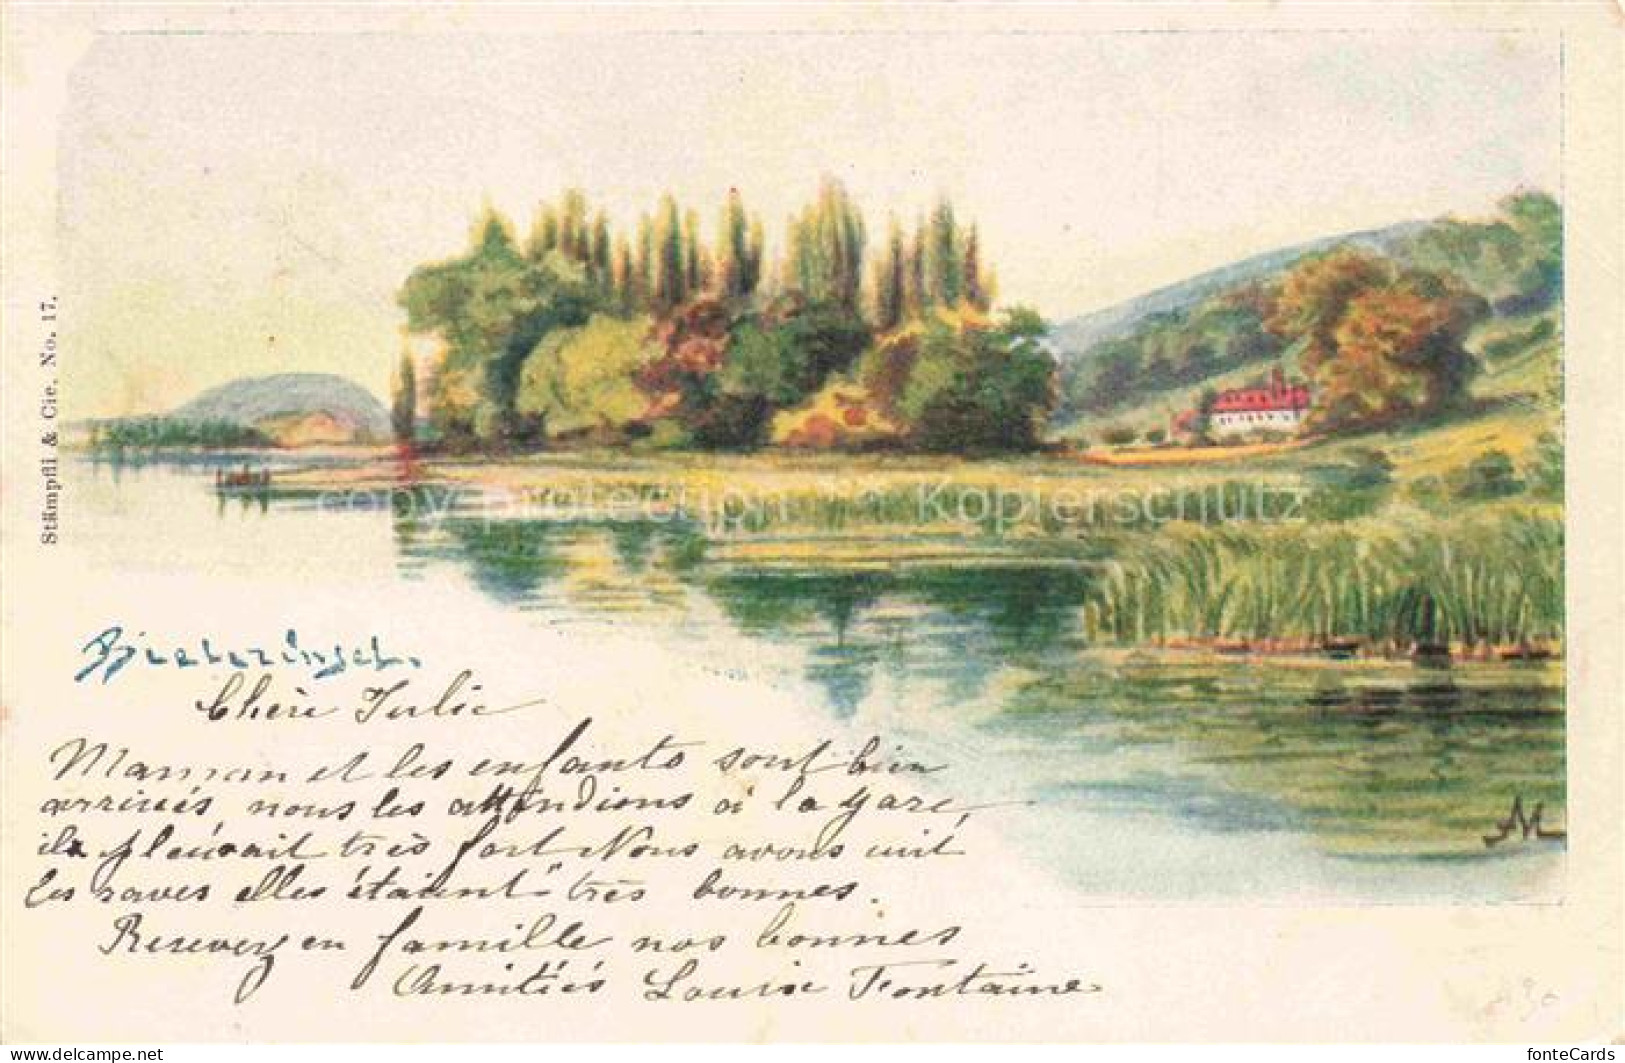 Stämpfli & Cie. No. 17.
copy protection in Kopierschutz
Bielerinsel.
Chère Julie
Maman et les enfants sont bien
arrivés, nous les attendions à la gare,
ils pleuvait très fort Nous avons cuit
les raves elles étaient très bonnes.
Recevez en famille nos bonnes
Amitiés Louise Fontaine
AM
delcampe.net
fonteCards